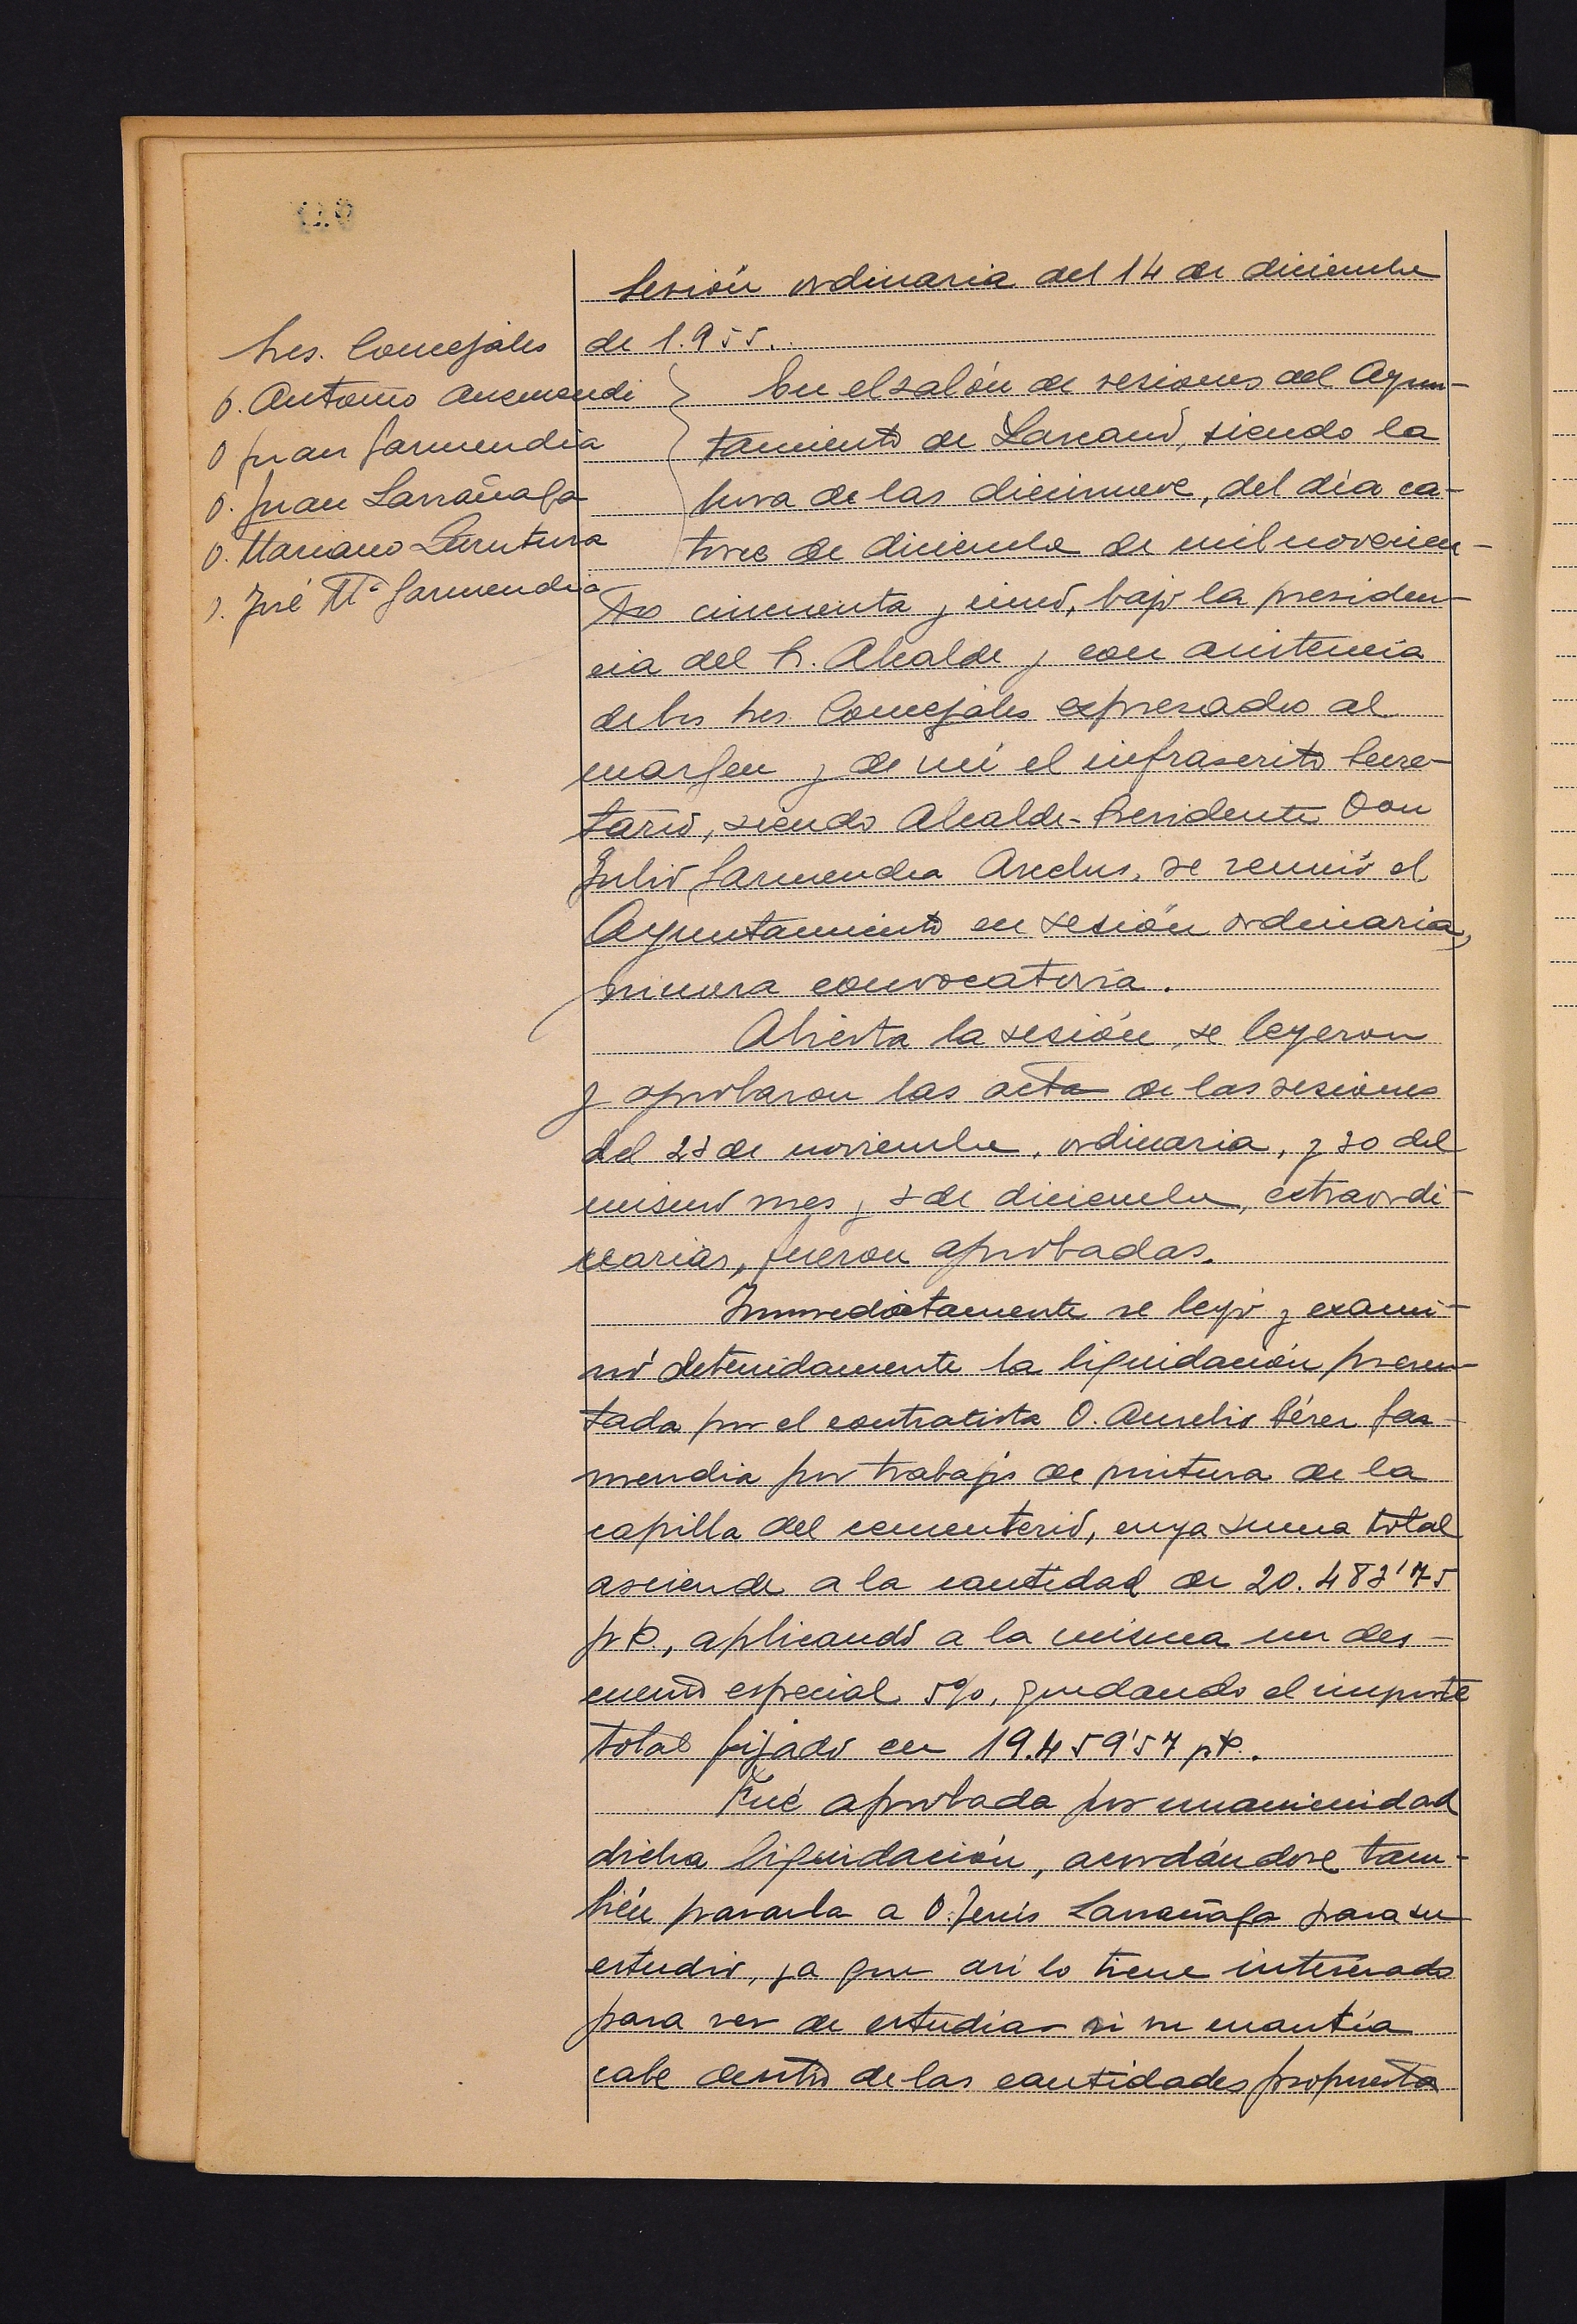 Sesión ordinaria del 14 de diciembre
de 1.955.
Sres. Concejales
D. Antonio Aucmendi
D. Juan Garmendia
D. Juan Larrañaga
D. Mariano Lurutura
D. José Mª Garmendia
En el salón de sesiones del Ayun-
tamiento de Lazcano, siendo la
hora de las diecinueve, del día ca-
torce de diciembre de mil novecien-
tos cincuenta y cinco, bajo la presiden-
cia del Sr. Alcalde y con asistencia
de los Sres. Concejales expresados al
margen y de mí el infrascrito Secre-
tario, siendo Alcalde-Presidente Don
Julio Garmendia Aseclus, se reunió el
Ayuntamiento en sesión ordinaria,
primera convocatoria.
Abierta la sesión, se leyeron
y aprobaron las actas de las sesiones
del 23 de noviembre, ordinaria, y 30 del
mismo mes y 3 de diciembre, extraordi-
narias, fueron aprobadas.
Inmediatamente se leyó y exami-
nó detenidamente la liquidación presen-
tada por el contratista D. Aurelio Pérez Gar-
mendia por trabajos de pintura de la
capilla del cementerio, cuya suma total
asciende a la cantidad de 20.483'75
pts, aplicando a la misma un des-
cuento especial 5%, quedando el importe
total fijado en 19.459'57 pts.
Fué aprobada por unanimidad
dicha liquidación, acordándose tam-
bién pasarla a D. Jesús Larrañaga para su
estudio, ya que así lo tiene interesado
para ver de estudiar si su cuantía
cabe dentro de las cantidades propuestas